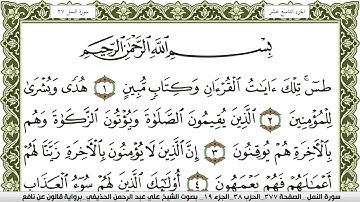 الجزء التاسع عشر
سورة النمل ٢٧
بِسْمِ اللَّهِ الرَّحْمَٰنِ الرَّحِيمِ
طسٓ ۚ تِلْكَ ءَايَٰتُ الْقُرْءَانِ وَكِتَابٖ مُّبِينٍ ١ هُدٗى وَبُشْرَىٰ
لِلْمُؤْمِنِينَ ٢ الَّذِينَ يُقِيمُونَ الصَّلَوٰةَ وَيُؤْتُونَ الزَّكَوٰةَ وَهُم
بِالْأَخِرَةِ هُمْ يُوقِنُونَ ٣ إِنَّ الَّذِينَ لَا يُؤْمِنُونَ بِالْأَخِرَةِ زَيَّنَّا لَهُمْ
أَعْمَٰلَهُمْ فَهُمْ يَعْمَهُونَ ٤ أُوْلَٰٓئِكَ الَّذِينَ لَهُمْ سُوٓءُ الْعَذَابِ
سورة النمل . الصفحة ٣٧٧ الحزب ٣٨ الجزء ١٩ . بصوت الشيخ علي عبد الرحمن الحذيفي . برواية قالون عن نافع